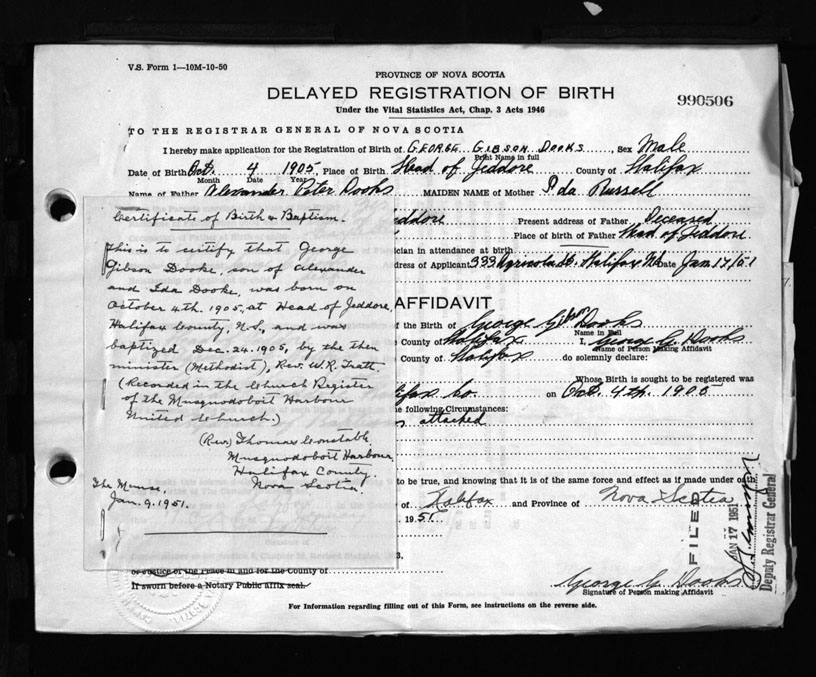 V.S. Form 1—10M-10-50
PROVINCE OF NOVA SCOTIA
DELAYED REGISTRATION OF BIRTH
990506
Under the Vital Statistics Act, Chap. 3 Acts 1946
TO THE REGISTRAR GENERAL OF NOVA SCOTIA
I hereby make application for the Registration of Birth of GEORGE GIBSON DOOKS, Sex Male
Print Name in full
Date of Birth Oct. 4 1905 Place of Birth Head of Jeddore County of Halifax
Month Date Year
Name of Father Alexander Peter Dooks MAIDEN NAME of Mother Ida Russell
Jeddore Present address of Father Deceased
Place of birth of Father Head of Jeddore
ician in attendance at birth
dress of Applicant 333 Agricola St. Halifax NS Jan 17/51
AFFIDAVIT
f the Birth of George Gibson Dooks
Name in Full
County of Halifax, I, George G. Dooks
Name of Person Making Affidavit
County of Halifax do solemnly declare:
Whose Birth is sought to be registered was
lifax Co. on Oct. 4th. 1905
he following Circumstances:
attached
to be true, and knowing that it is of the same force and effect as if made under
Halifax and Province of Nova Scotia
1951
Certificate of Birth & Baptism.
This is to certify that George
Gibson Dooke, son of Alexander
and Ida Dooke, was born on
October 4th. 1905, at Head of Jeddore,
Halifax County, N.S., and was
baptized Dec. 24. 1905, by the then
minister (Methodist), Rev. W.R. Tratt.
(Recorded in the Church Register
of the Musquodoboit Harbour
United Church.)
(Rev.) Thomas Constable.
Musquodoboit Harbour
Halifax County.
Nova Scotia.
The Manse,
Jan. 9. 1951.
or Justice of the Peace in and for the County of
If sworn before a Notary Public affix seal.
FILED
JAN 17 1951
Deputy Registrar General
George G. Dooks
Signature of Person making Affidavit
For Information regarding filling out of this Form, see instructions on the reverse side.